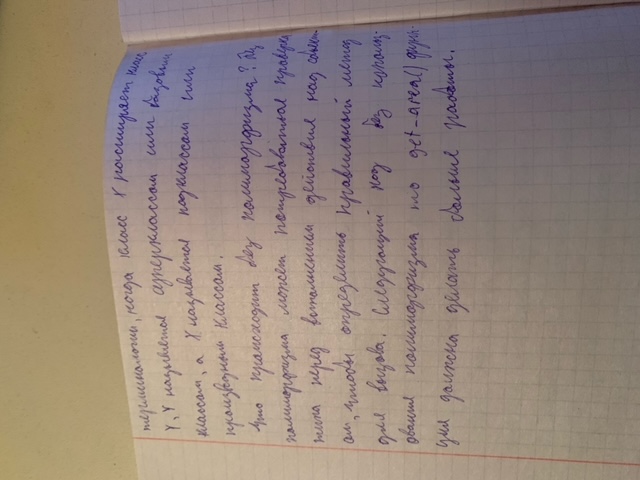 терминологии, когда класс X расширяет класс
Y, Y называется суперклассом или базовым
классом, а X называется подклассом или
производным классом.
Что происходит без полиморфизма? Без
полиморфизма может потребоваться проверка
типа перед выполнением действия над объект-
ом, чтобы определить правильный метод
для вызова. Следующий код без использ-
ования полиморфизма то get-area() функ-
ция должна делать больше работы.